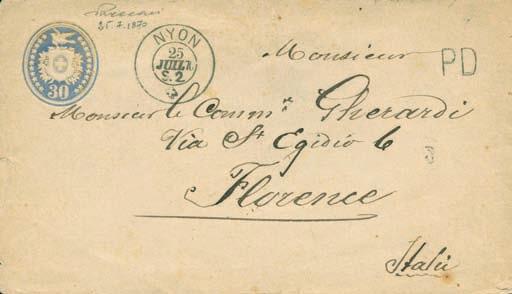 25.7.1870
30
NYON
25
JUIL 70
S.2
PD
Monsieur
Monsieur le Comm.re Gherardi
Via St Egidio 6
Florence
Italie